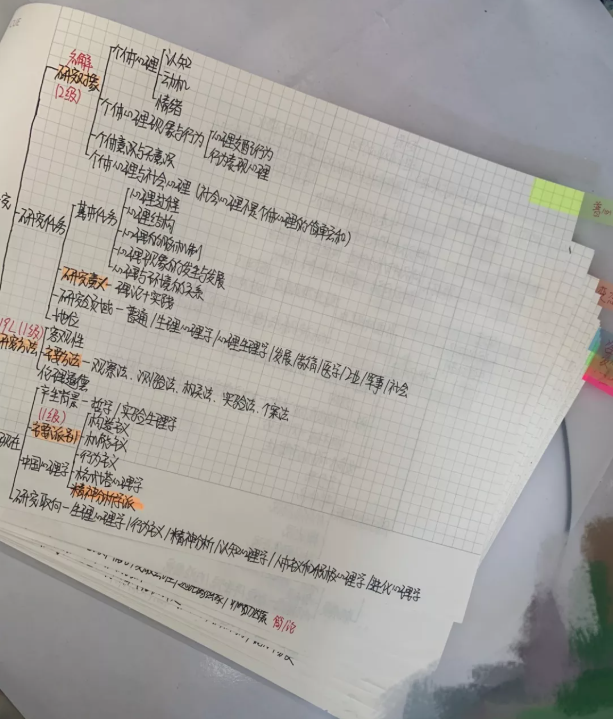 名解
研究对象
(2级)
个体心理
认知
动机
情绪
个体心理现象与行为
心理支配行为
行为表现心理
个体意识与无意识
个体心理与社会心理 (社会心理不是个体心理的简单总和)
究
研究任务
基本任务
心理过程
心理结构
心理的脑机制
心理现象的发生与发展
心理与环境的关系
研究意义 - 理论+实践
研究领域 - 普通/生理心理学/心理生理学/发展/教育/医学/工业/军事/社会
地位
(1级)
研究方法
客观性
主要方法 - 观察法、测验法、相关法、实验法、个案法
伦理
产生背景 - 哲学/实验生理学
(1级)
主要派别
构造主义
机能主义
行为主义
格式塔心理学
精神分析学派
中国心理学
研究取向 - 生理心理学/行为主义/精神分析/认知心理学/人本主义和积极心理学/进化心理学
简/论